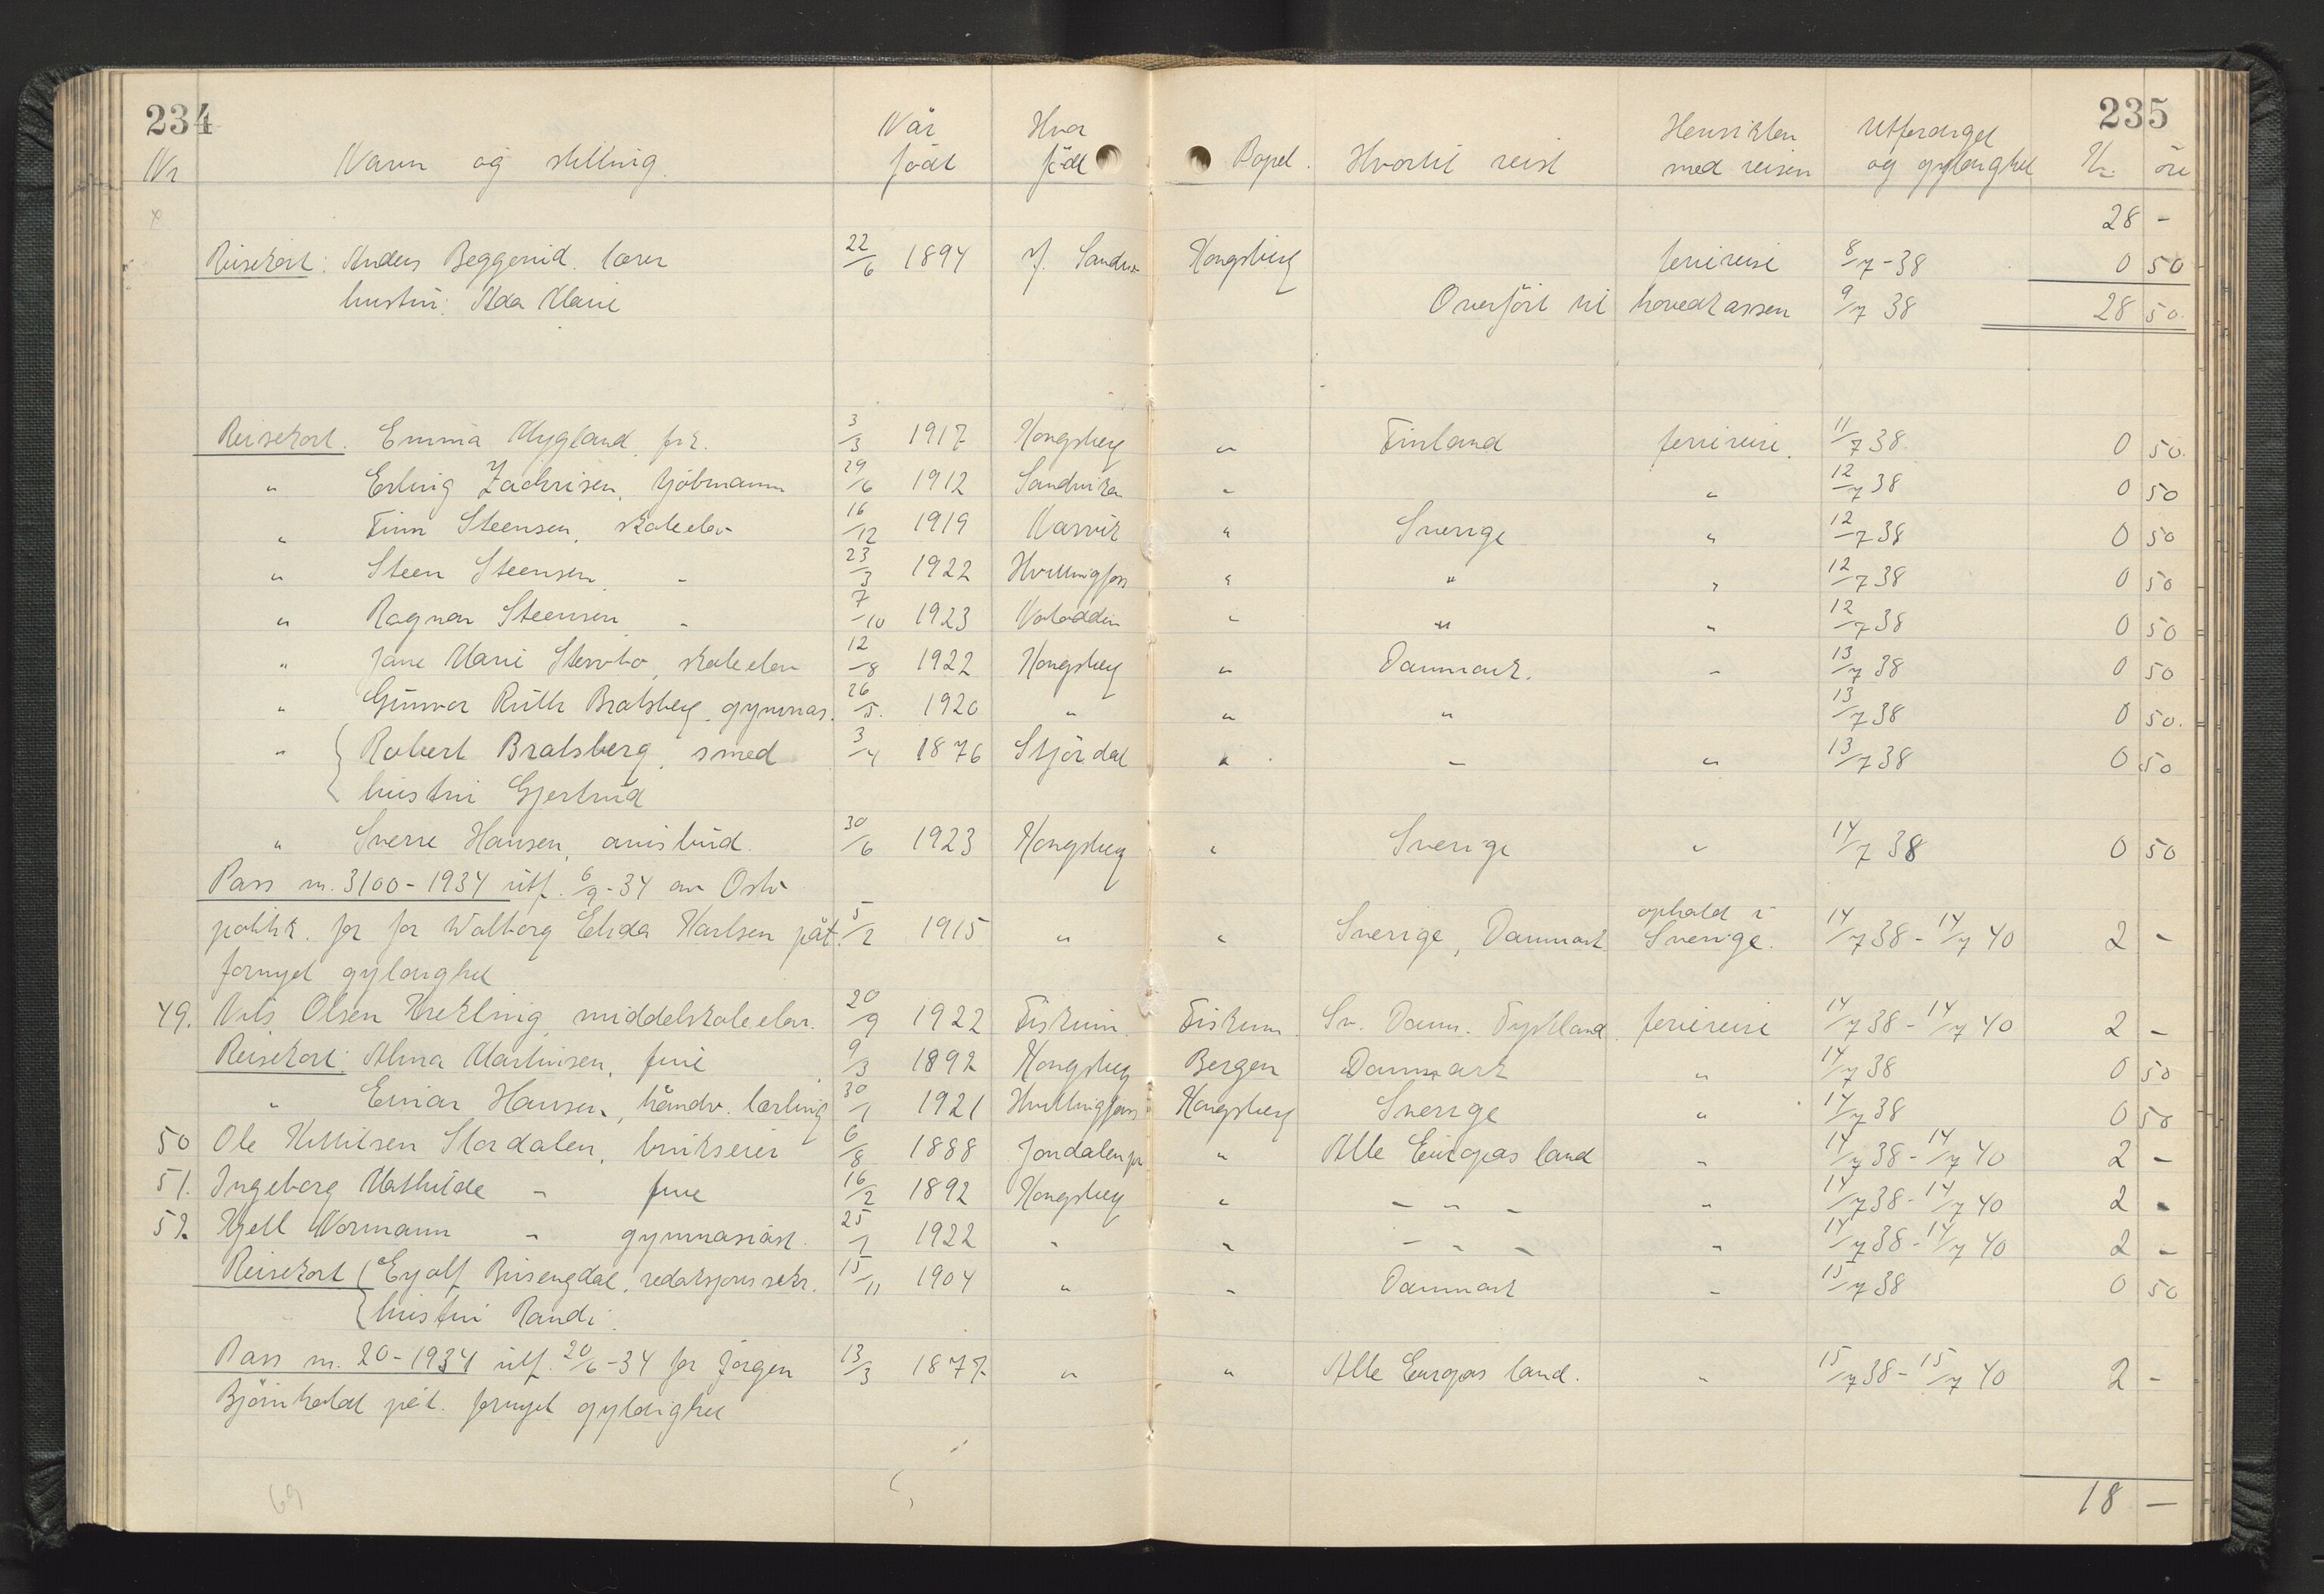 234 235
Nr Navn og stilling. Når födt Hvor födt Bopel. Hvortil reist Hensikten med reisen Utferdiget og gyldighet Kr. öre
28 -
Reisekort: Anders Beggerud. lærer 22/6 1894 Y. Sandsv. Kongsberg feriereise 8/7-38 0 50
hustru: Ada Marie Overfört til hovedkassen 9/7 38 28 50.
Reisekort. Emma Mygland, frk. 3/3 1917 Kongsberg " Finland feriereise. 11/7 38. 0 50.
" Erling Zachrisen, kjöbmann 29/6 1912 Sandviken " " 12/7 38 0 50
" Finn Steensen, skoleelev 16/12 1919 Narvik " Sverige " 12/7 38 0 50
" Steen Steensen, " 23/3 1922 Hvittingfoss " " " 12/7 38 0 50
" Ragnar Steensen " 7/10 1923 Notodden " " " 12/7 38 0 50
" Jane Marie skoleelev 12/8 1922 Kongsberg " Danmark. " 13/7 38 0 50
" Gunvor Ruth Bratsberg, gymnas. 26/5. 1920 " " " 13/7 38 0 50.
" { Robert Bratsberg, smed 3/4 1876 Stjördal " " " 13/7 38 0 50
hustru Gjertrud
" Sverre Hansen, avisbud. 30/6 1923 Kongsberg " Sverige " 14/7 38 0 50
Pass nr. 3100-1934 utf. 6/9-34 av Oslo
politik. for for Walborg Elida Karlsen påt. 5/2 1915 " " Sverige, Danmark ophold i Sverige. 14/7 38 - 14/7 40 2 -
fornyet gyldighet
49. Nils Olsen Krekling middelskoleelev. 20/9 1922 Fiskum. Fiskum. Sv. Danm. Tyskland. feriereise 14/7 38 - 14/7 40 2 -
Reisekort: Alma Martinsen, frue 9/3 1892 Kongsberg Bergen Danmark " 14/7 38 0 50
" Einar Hansen, håndv. lærling 30/1 1921 Hvittingfoss Kongsberg Sverige " 14/7 38 0 50
50 Ole Kittilsen Stordalen, brukseier 6/8 1888 Jondalen pr. " Alle Europas land " 14/7 38 - 14/7 40 2 -
51. Ingeborg Mathilde " frue 16/2 1892 Kongsberg " - " - " 14/7 38 - 14/7 40 2 -
52 Kjell Normann " gymnasiast. 25/1 1922 " " - " - " 14/7 38 - 14/7 40 2 -
Reisekort { Eyolf Busengdal, redaksjonssekr. 15/11 1904 " " Danmark " 15/7 38 0 50
hustru Randi.
Pass nr. 20-1934 utf. 20/6-34 for Jörgen 13/3 1877 " " Alle Europas land. " 15/7 38 - 15/7 40 2 -
Björnholdt påt. fornyet gyldighet
69
18 -